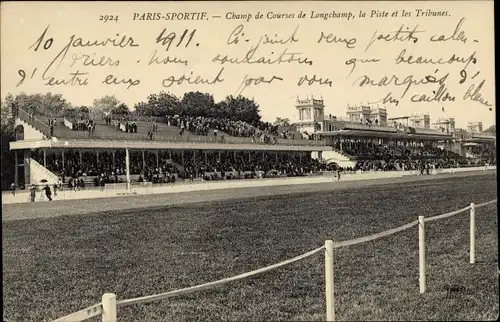 2924 PARIS-SPORTIF. — Champ de Courses de Longchamp, la Piste et les Tribunes.
10 Janvier 1911. – Ci-joint deux petits calen-
driers; nous souhaitons que beaucoup
d'entre eux soient par vous marqués d'
un caillou blanc